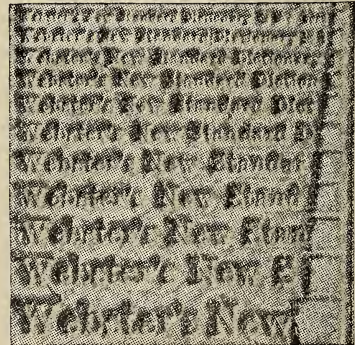 Webster's New Standard Dictionary
Webster's New Standard Dictionary
Webster's New Standard Diction
Webster's New Standard Dict
Webster's New Standard D
Webster's New Standar
Webster's New Stand
Webster's New Stan
Webster's New S
Webster's New